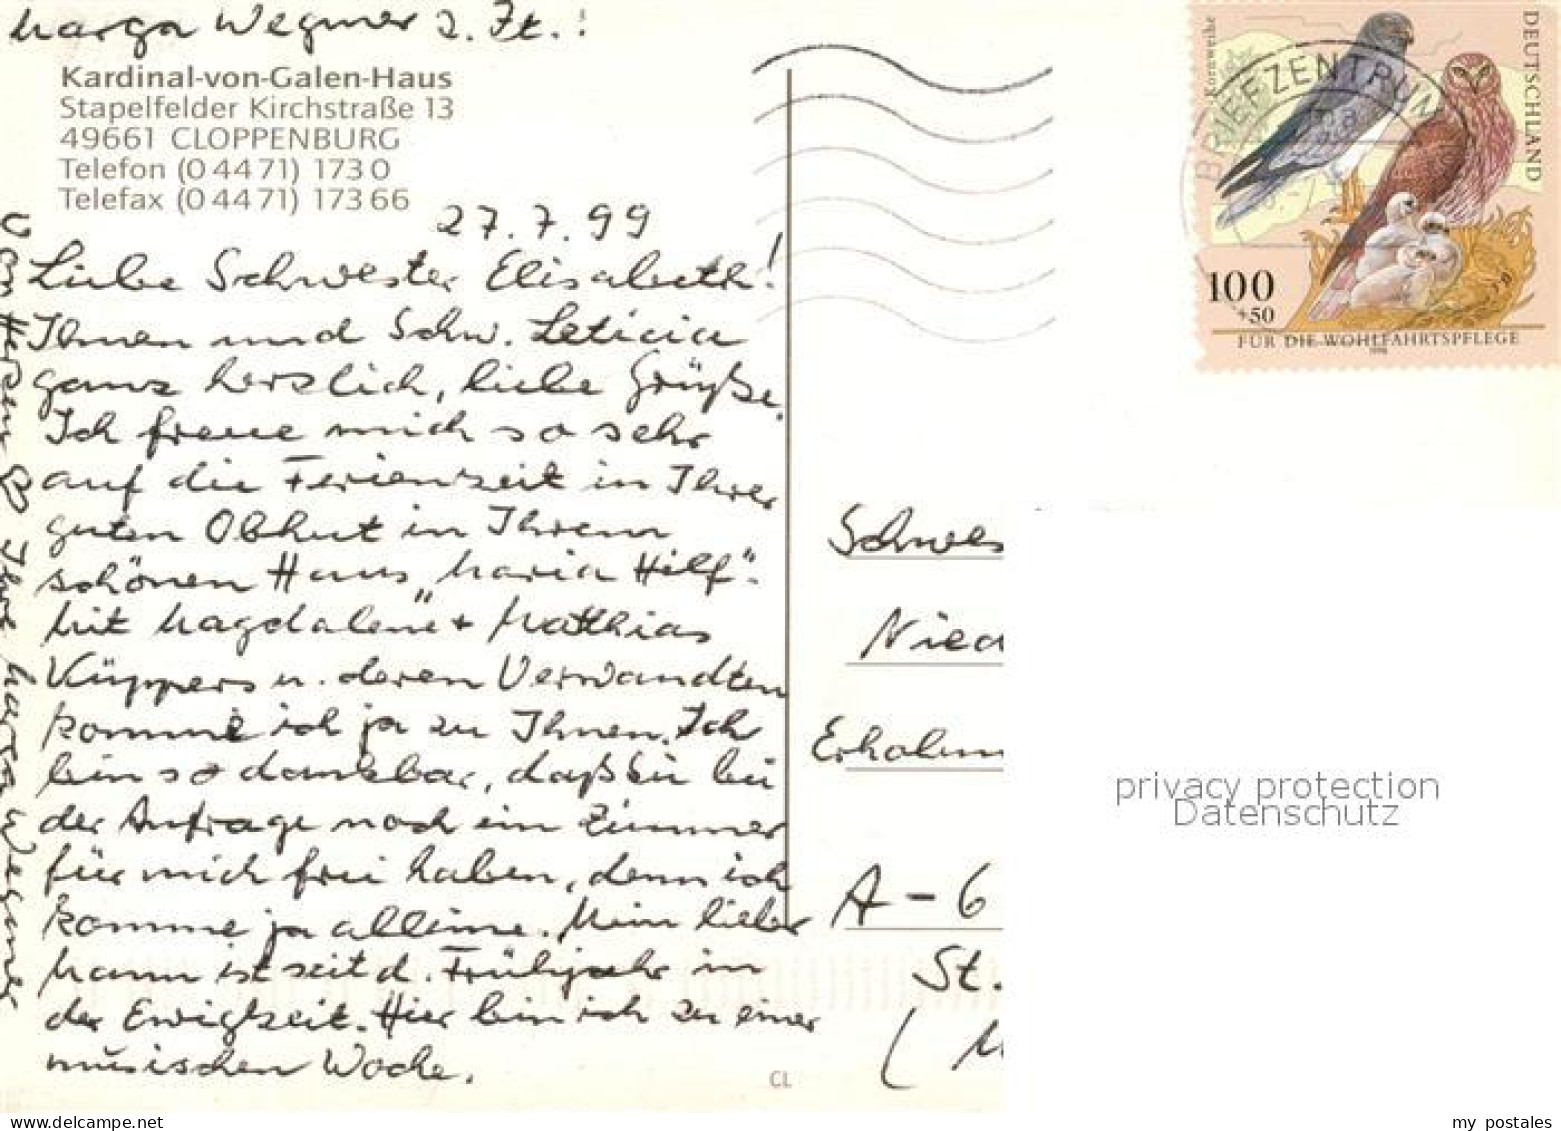 Marga Wegmer z. Zt.:
Kardinal-von-Galen-Haus
Stapelfelder Kirchstraße 13
49661 CLOPPENBURG
Telefon (0 44 71) 173 0
Telefax (0 44 71) 173 66
27.7.99
Liebe Schwester Elisabeth!
Ihnen und Schw. Leticia
ganz herzlich, liebe Grüße.
Ich freue mich so sehr
auf die Ferienzeit in Ihrer
guten Obhut in Ihrem
schönen Haus „Maria Hilf".
Mit Magdalene + Matthias
Küppers u. deren Verwandten
komme ich ja zu Ihnen. Ich
bin so dankbar, daß Sie bei
der Anfrage noch ein Zimmer
für mich frei haben, denn ich
komme ja alleine. Mein lieber
Mann ist seit d. Frühjahr in
der Ewigkeit. Hier bin ich zu einer
musischen Woche.
Von Herzen Ihre Marga Wegmer
CL
BRIEFZENTRUM
Kornweihe
DEUTSCHLAND
100
+50
FÜR DIE WOHLFAHRTSPFLEGE
1998
Schwes
Nied
Erholun
A - 6
St.
( M
privacy protection
Datenschutz
my postales